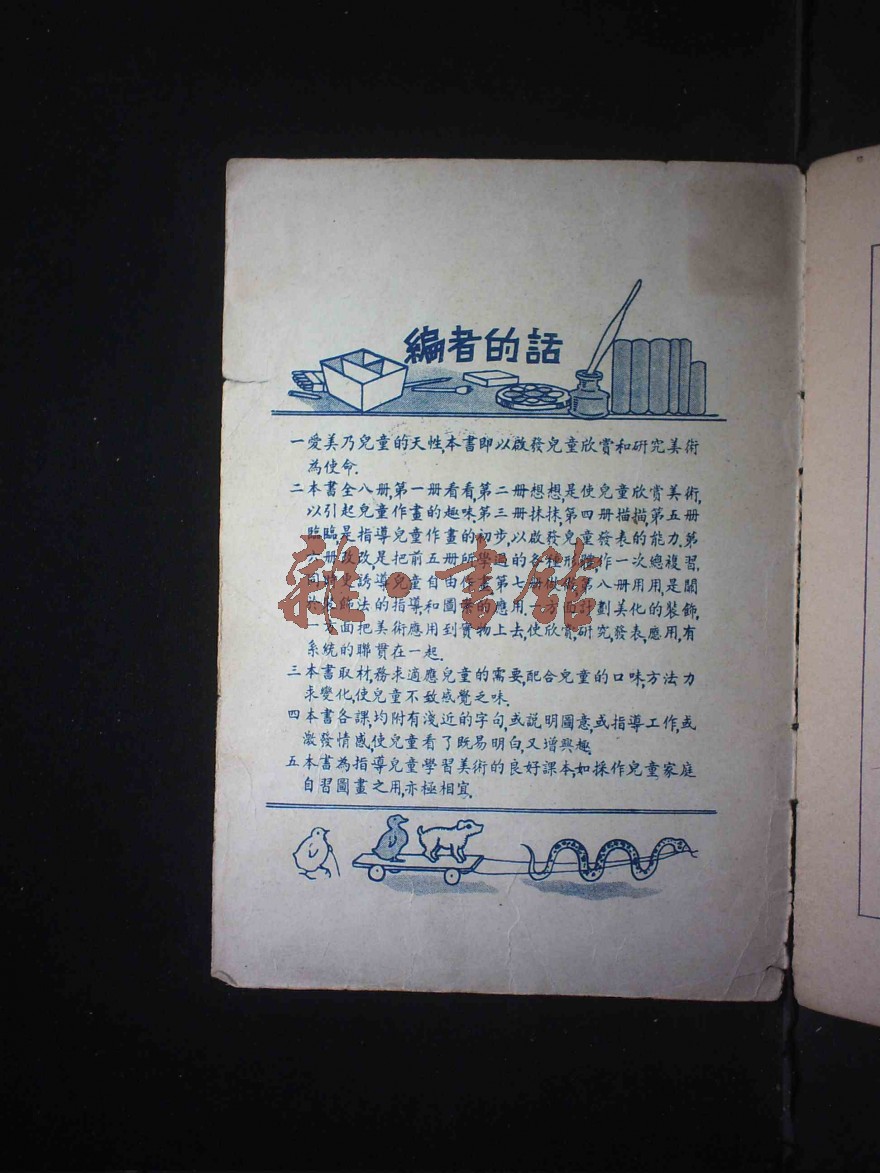 編者的話
一愛美乃兒童的天性,本書即以啟發兒童欣賞和研究美術
為使命.
二本書全八册,第一册看看,第二册想想,是使兒童欣賞美術,
以引起兒童作畫的趣味.第三册抹抹,第四册描描,第五册
臨臨是指導兒童作畫的初步,以啟發兒童發表的能力.第
六册改改,是把前五册所學過的各種形體作一次總複習,
同時更誘導兒童自由作畫.第七册做做,第八册用用,是關
於裝飾法的指導和圖案的應用.一方面計劃美化的裝飾,
一方面把美術應用到實物上去,使欣賞,研究,發表,應用,有
系統的聯貫在一起.
三本書取材,務求適應兒童的需要,配合兒童的口味,方法力
求變化,使兒童不致感覺乏味.
四本書各課,均附有淺近的字句,或説明圖意,或指導工作,或
激發情感,使兒童看了既易明白,又增興趣.
五本書為指導兒童學習美術的良好課本,如採作兒童家庭
自習圖畫之用,亦極相宜.
雜·書館